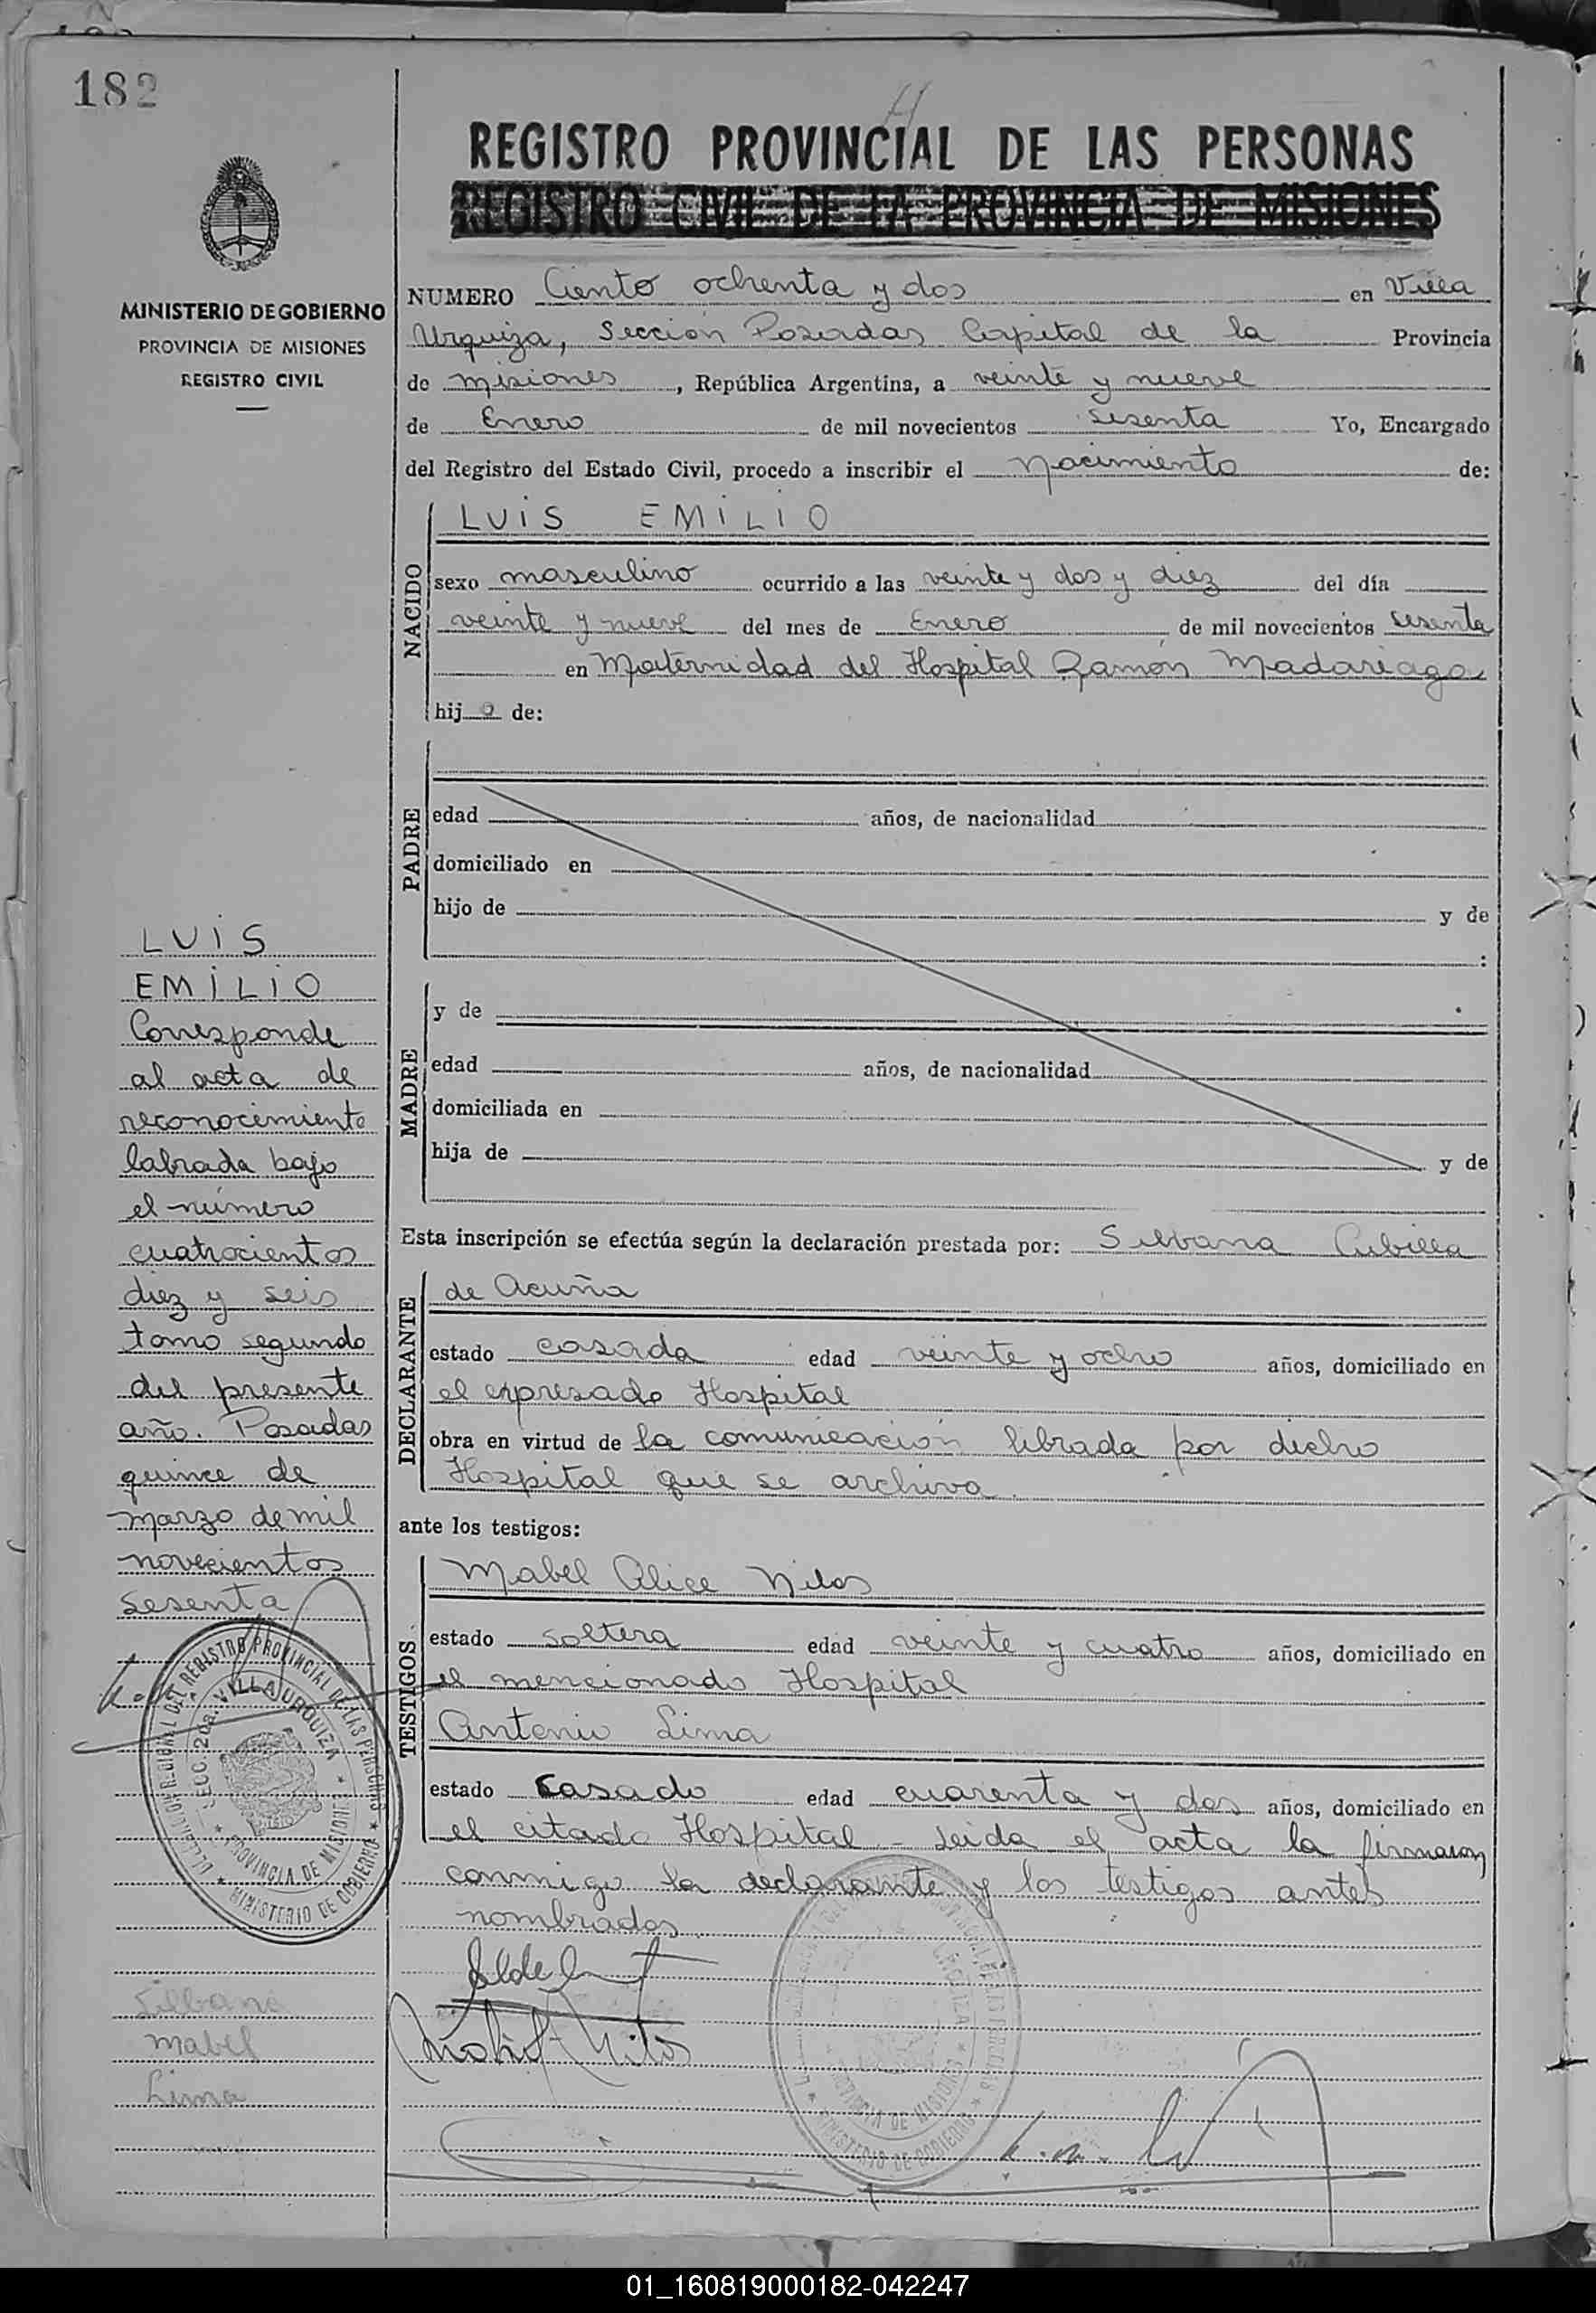 182
REGISTRO PROVINCIAL DE LAS PERSONAS
REGISTRO CIVIL DE LA PROVINCIA DE MISIONES
MINISTERIO DE GOBIERNO
PROVINCIA DE MISIONES
REGISTRO CIVIL
NUMERO Ciento ochenta y dos en Villa
Urquiza, Sección Posadas Capital de la Provincia
de misiones, República Argentina, a veinte y nueve
de Enero de mil novecientos sesenta Yo, Encargado
del Registro del Estado Civil, procedo a inscribir el nacimiento de:
NACIDO
LUIS EMILIO
sexo masculino ocurrido a las veinte y dos y diez del día
veinte y nueve del mes de Enero de mil novecientos sesenta
en Maternidad del Hospital Ramón Madariaga
hijo de:
PADRE
edad años, de nacionalidad
domiciliado en
hijo de y de
:
MADRE
y de
edad años, de nacionalidad
domiciliada en
hija de y de
Esta inscripción se efectúa según la declaración prestada por: Silvana Cubilla
DECLARANTE
de Acuña
estado casada edad veinte y ocho años, domiciliado en
el expresado Hospital
obra en virtud de la comunicación librada por dicho
Hospital que se archiva.
ante los testigos:
TESTIGOS
Mabel Alice Nilos
estado soltera edad veinte y cuatro años, domiciliado en
el mencionado Hospital
Antonio Lima
estado casado edad cuarenta y dos años, domiciliado en
el citado Hospital - Leida el acta la firmaron
conmigo la declarante y los testigos antes
nombrados.
LUIS
EMILIO
Corresponde
al acta de
reconocimiento
labrada bajo
el número
cuatrocientos
diez y seis
tomo segundo
del presente
año. Posadas
quince de
marzo de mil
novecientos
sesenta
DELEGACION REGIONAL DEL REGISTRO PROVINCIAL DE LAS PERSONAS
SECC. 2da. VILLA URQUIZA
PROVINCIA DE MISIONES
MINISTERIO DE GOBIERNO
Silbana
Mabel
Lima
01_160819000182-042247